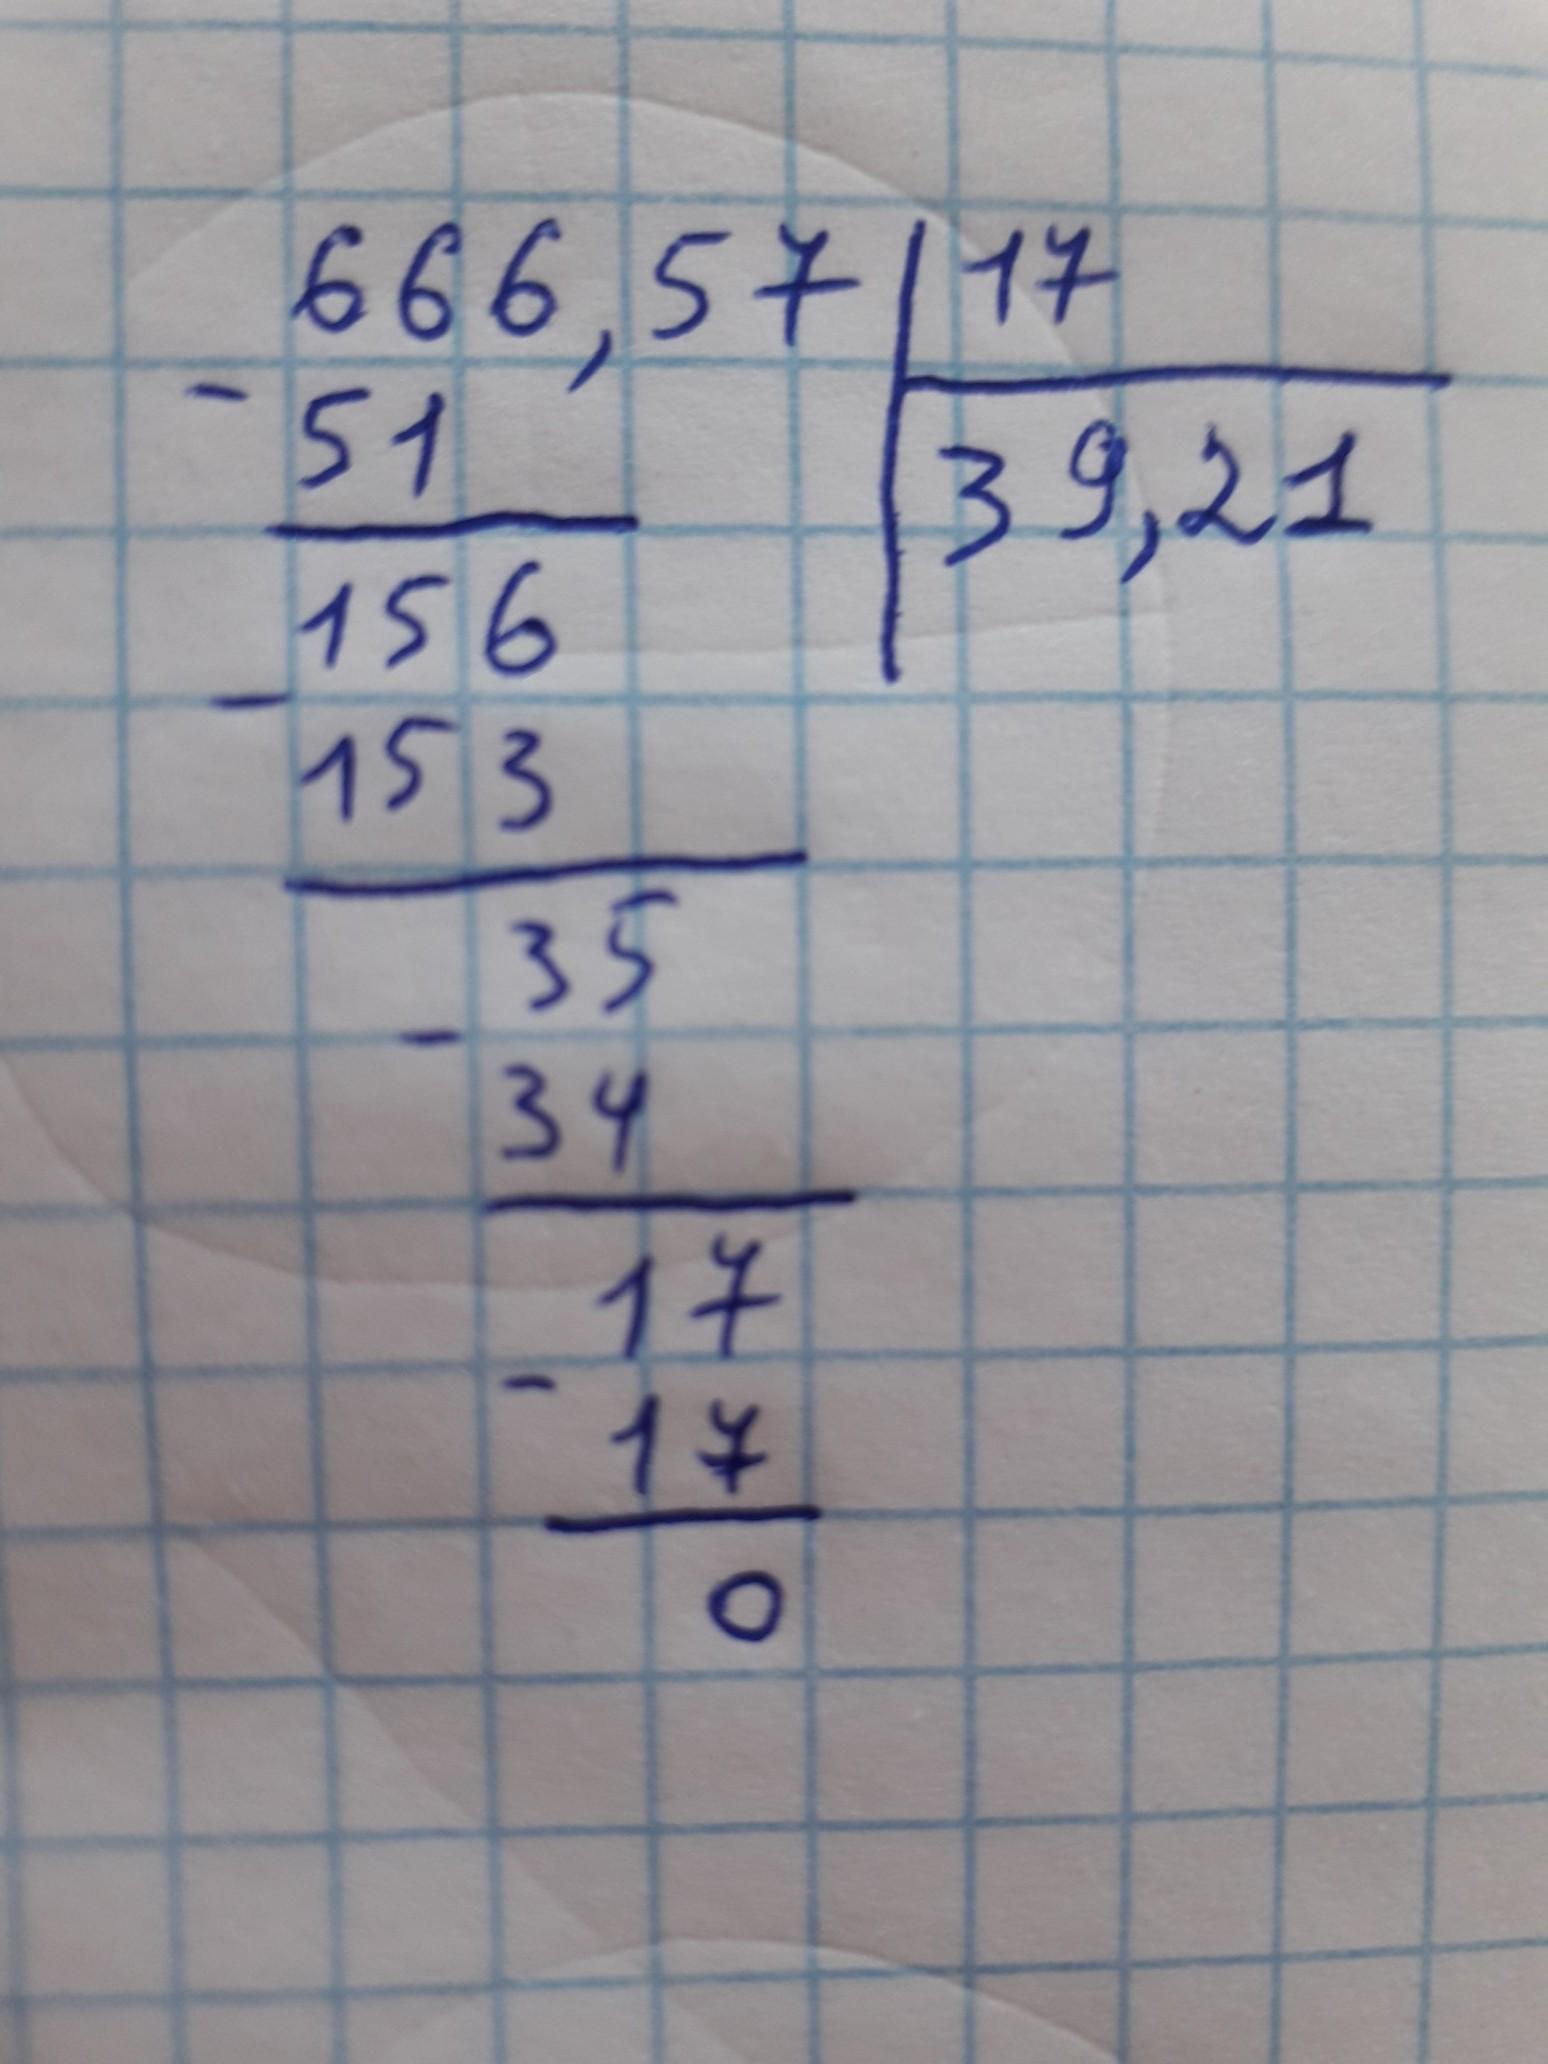 666,57 17
- 51 39,21
156
- 153
35
- 34
17
- 17
0